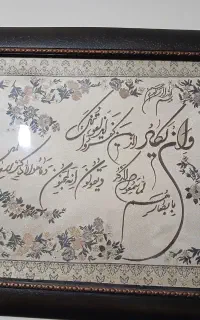 بسم الله الرحمن الرحیم
وان یکاد الذین کفروا
لیزلقونک
بابصارهم
لما سمعوا الذکر
ویقولون انه لمجنون
وما هو الا ذکر